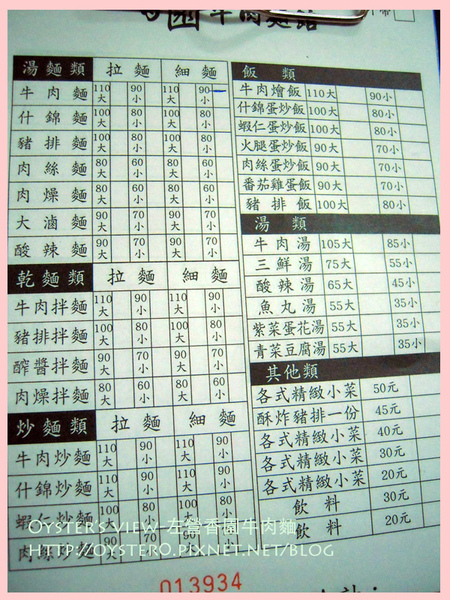 園牛肉麵館
湯麵類 拉麵 細麵
牛肉麵 110大 90小 110大 90小
什錦麵 100大 80小 100大 80小
豬排麵 100大 80小 100大 80小
肉絲麵 80大 60小 80大 60小
肉燥麵 80大 60小 80大 60小
大滷麵 90大 70小 90大 70小
酸辣麵 90大 70小 90大 70小
乾麵類 拉麵 細麵
牛肉拌麵 110大 90小 110大 90小
豬排拌麵 100大 80小 100大 80小
酢醬拌麵 90大 70小 90大 70小
肉燥拌麵 80大 60小 80大 60小
炒麵類 拉麵 細麵
牛肉炒麵 110大 90小 110大 90小
什錦炒麵 110大 90小 110大 90小
蝦仁炒麵 100大 80小 100大 80
肉絲炒麵 90大 70 90大 70
飯類
牛肉燴飯 110大 90小
什錦蛋炒飯 100大 80小
蝦仁蛋炒飯 100大 80小
火腿蛋炒飯 90大 70小
肉絲蛋炒飯 90大 70小
番茄雞蛋飯 90大 70小
豬排飯 100大 80小
湯類
牛肉湯 105大 85小
三鮮湯 75大 55小
酸辣湯 65大 45小
魚丸湯 55大 35小
紫菜蛋花湯 55大 35小
青菜豆腐湯 55大 35小
其他類
各式精緻小菜 50元
酥炸豬排一份 45元
各式精緻小菜 40元
各式精緻小菜 30元
各式精緻小菜 20元
飲料 30元
飲料 20元
OYSTER'S VIEW-左營香園牛肉麵
HTTP://OYSTERO.PIXNET.NET/BLOG
013934